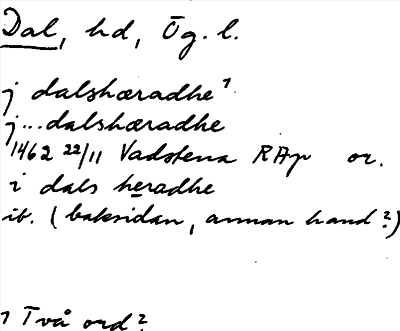 Dal, hd, Ög. l.
j dalshæradhe¹
j...dalshæradhe
1462 22/11 Vadstena RAp or.
i dals heradhe
ib. (baksidan, annan hand?)
1 Två ord?